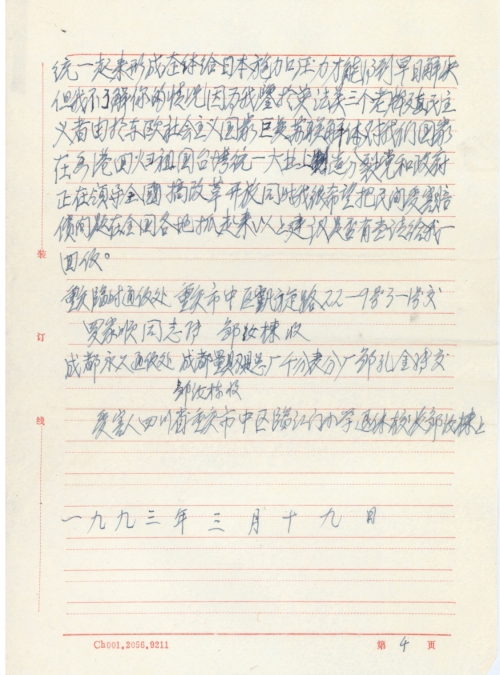 统一起来形成整体给日本施加压力才能得到早日解决
但我不了解你的情况因为我鉴于英法美三个老牌殖民主
义者由于东欧社会主义国家巨变苏联解体对我们国家
在香港回归祖国台湾统一大业上制造分裂党和政府
正在领导全國搞改革开放同时我很希望把民间受害赔
偿问题在全国各地抓起来以上建议是否有当请给我一
回佽。
重庆临时通佽处 重庆市中区凱旋路22—9号3—1号交
罗家顺同志转 邹汝栋收
成都永久通佽处 成都量具刃具总厂千分表分厂邹孔金转交
邹汝栋收
受害人四川省重庆市中区临江门小学退休校长邹汝栋上
一九九三年三月十九日
装
订
线
Ch001.2056.9211
第 4 页